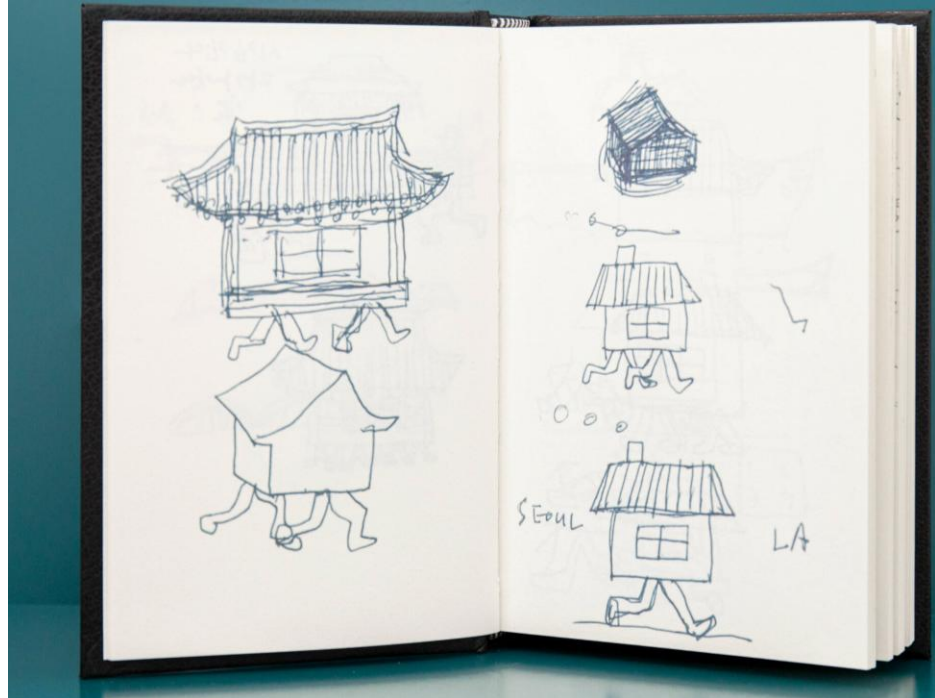 SEOUL
LA